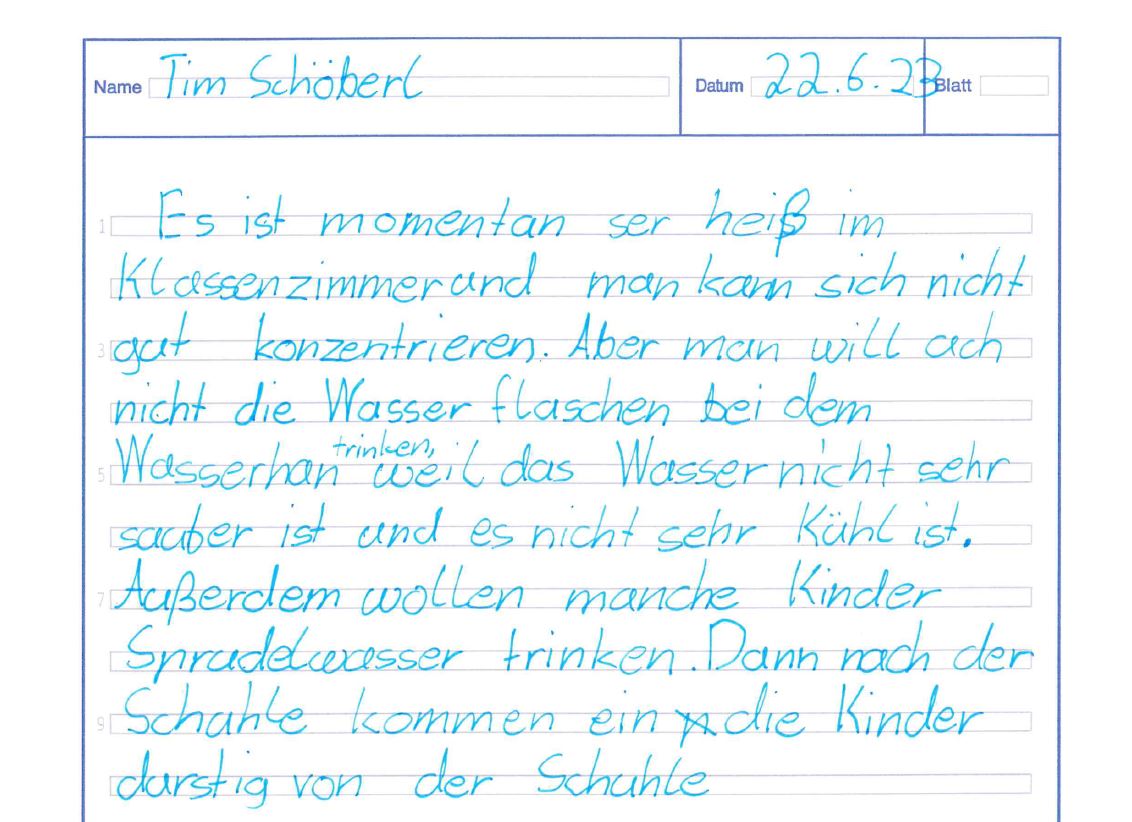 Name Tim Schöberl Datum 22.6.23 Blatt
1 Es ist momentan ser heiß im
Klassenzimmer und man kann sich nicht
3 gut konzentrieren. Aber man will ach
nicht die Wasser flaschen bei dem
trinken,
5 Wasserhan weil das Wasser nicht sehr
sauber ist und es nicht sehr Kühl ist.
7 Außerdem wollen manche Kinder
Sprudelwasser trinken. Dann nach der
9 Schuhle kommen ein die Kinder
durstig von der Schuhle